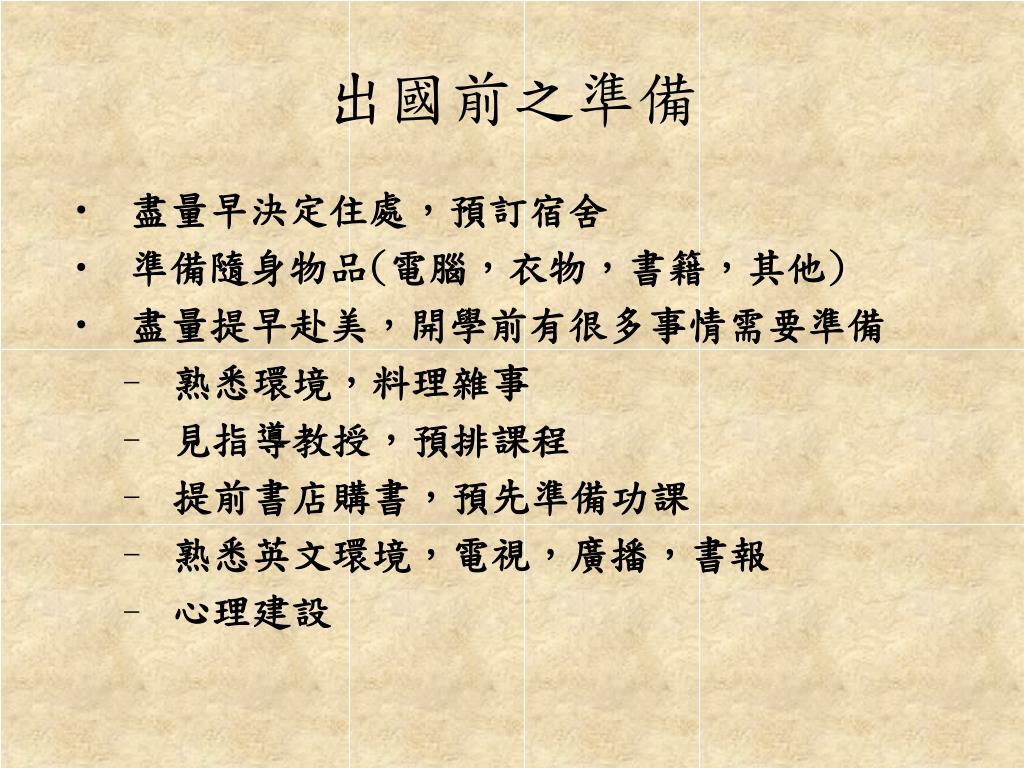 出國前之準備
• 盡量早決定住處，預訂宿舍
• 準備隨身物品(電腦，衣物，書籍，其他)
• 盡量提早赴美，開學前有很多事情需要準備
– 熟悉環境，料理雜事
– 見指導教授，預排課程
– 提前書店購書，預先準備功課
– 熟悉英文環境，電視，廣播，書報
– 心理建設